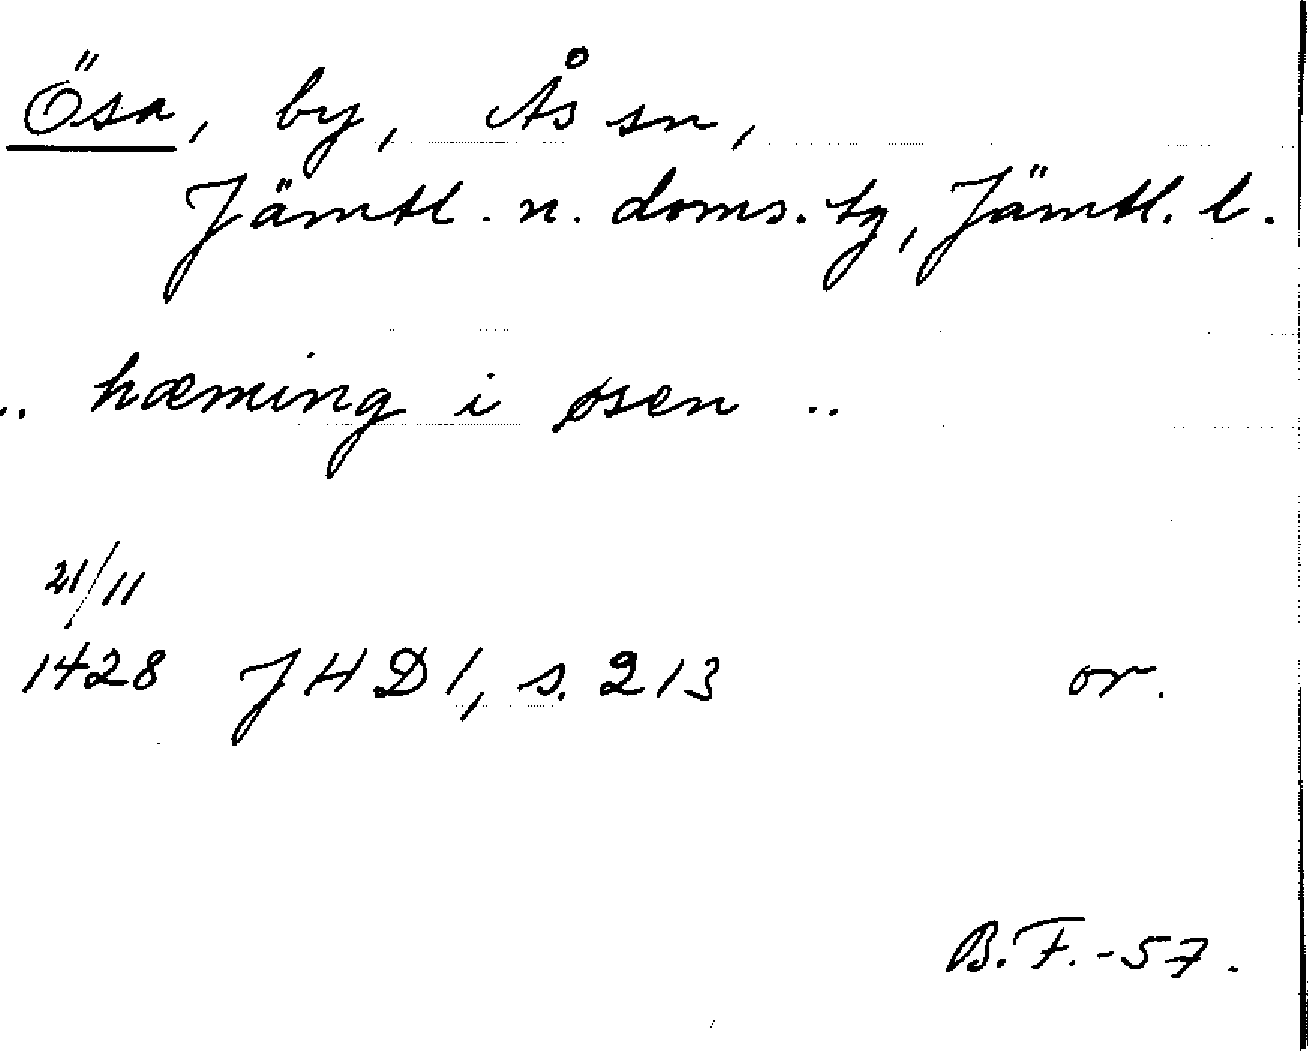 Ösa, by, Ås sn,
Jämtl. n. doms. tg, Jämtl. l.
.. hæming i øsen ..
21/11
1428 JHD 1, s. 213 or.
B.F.-57.